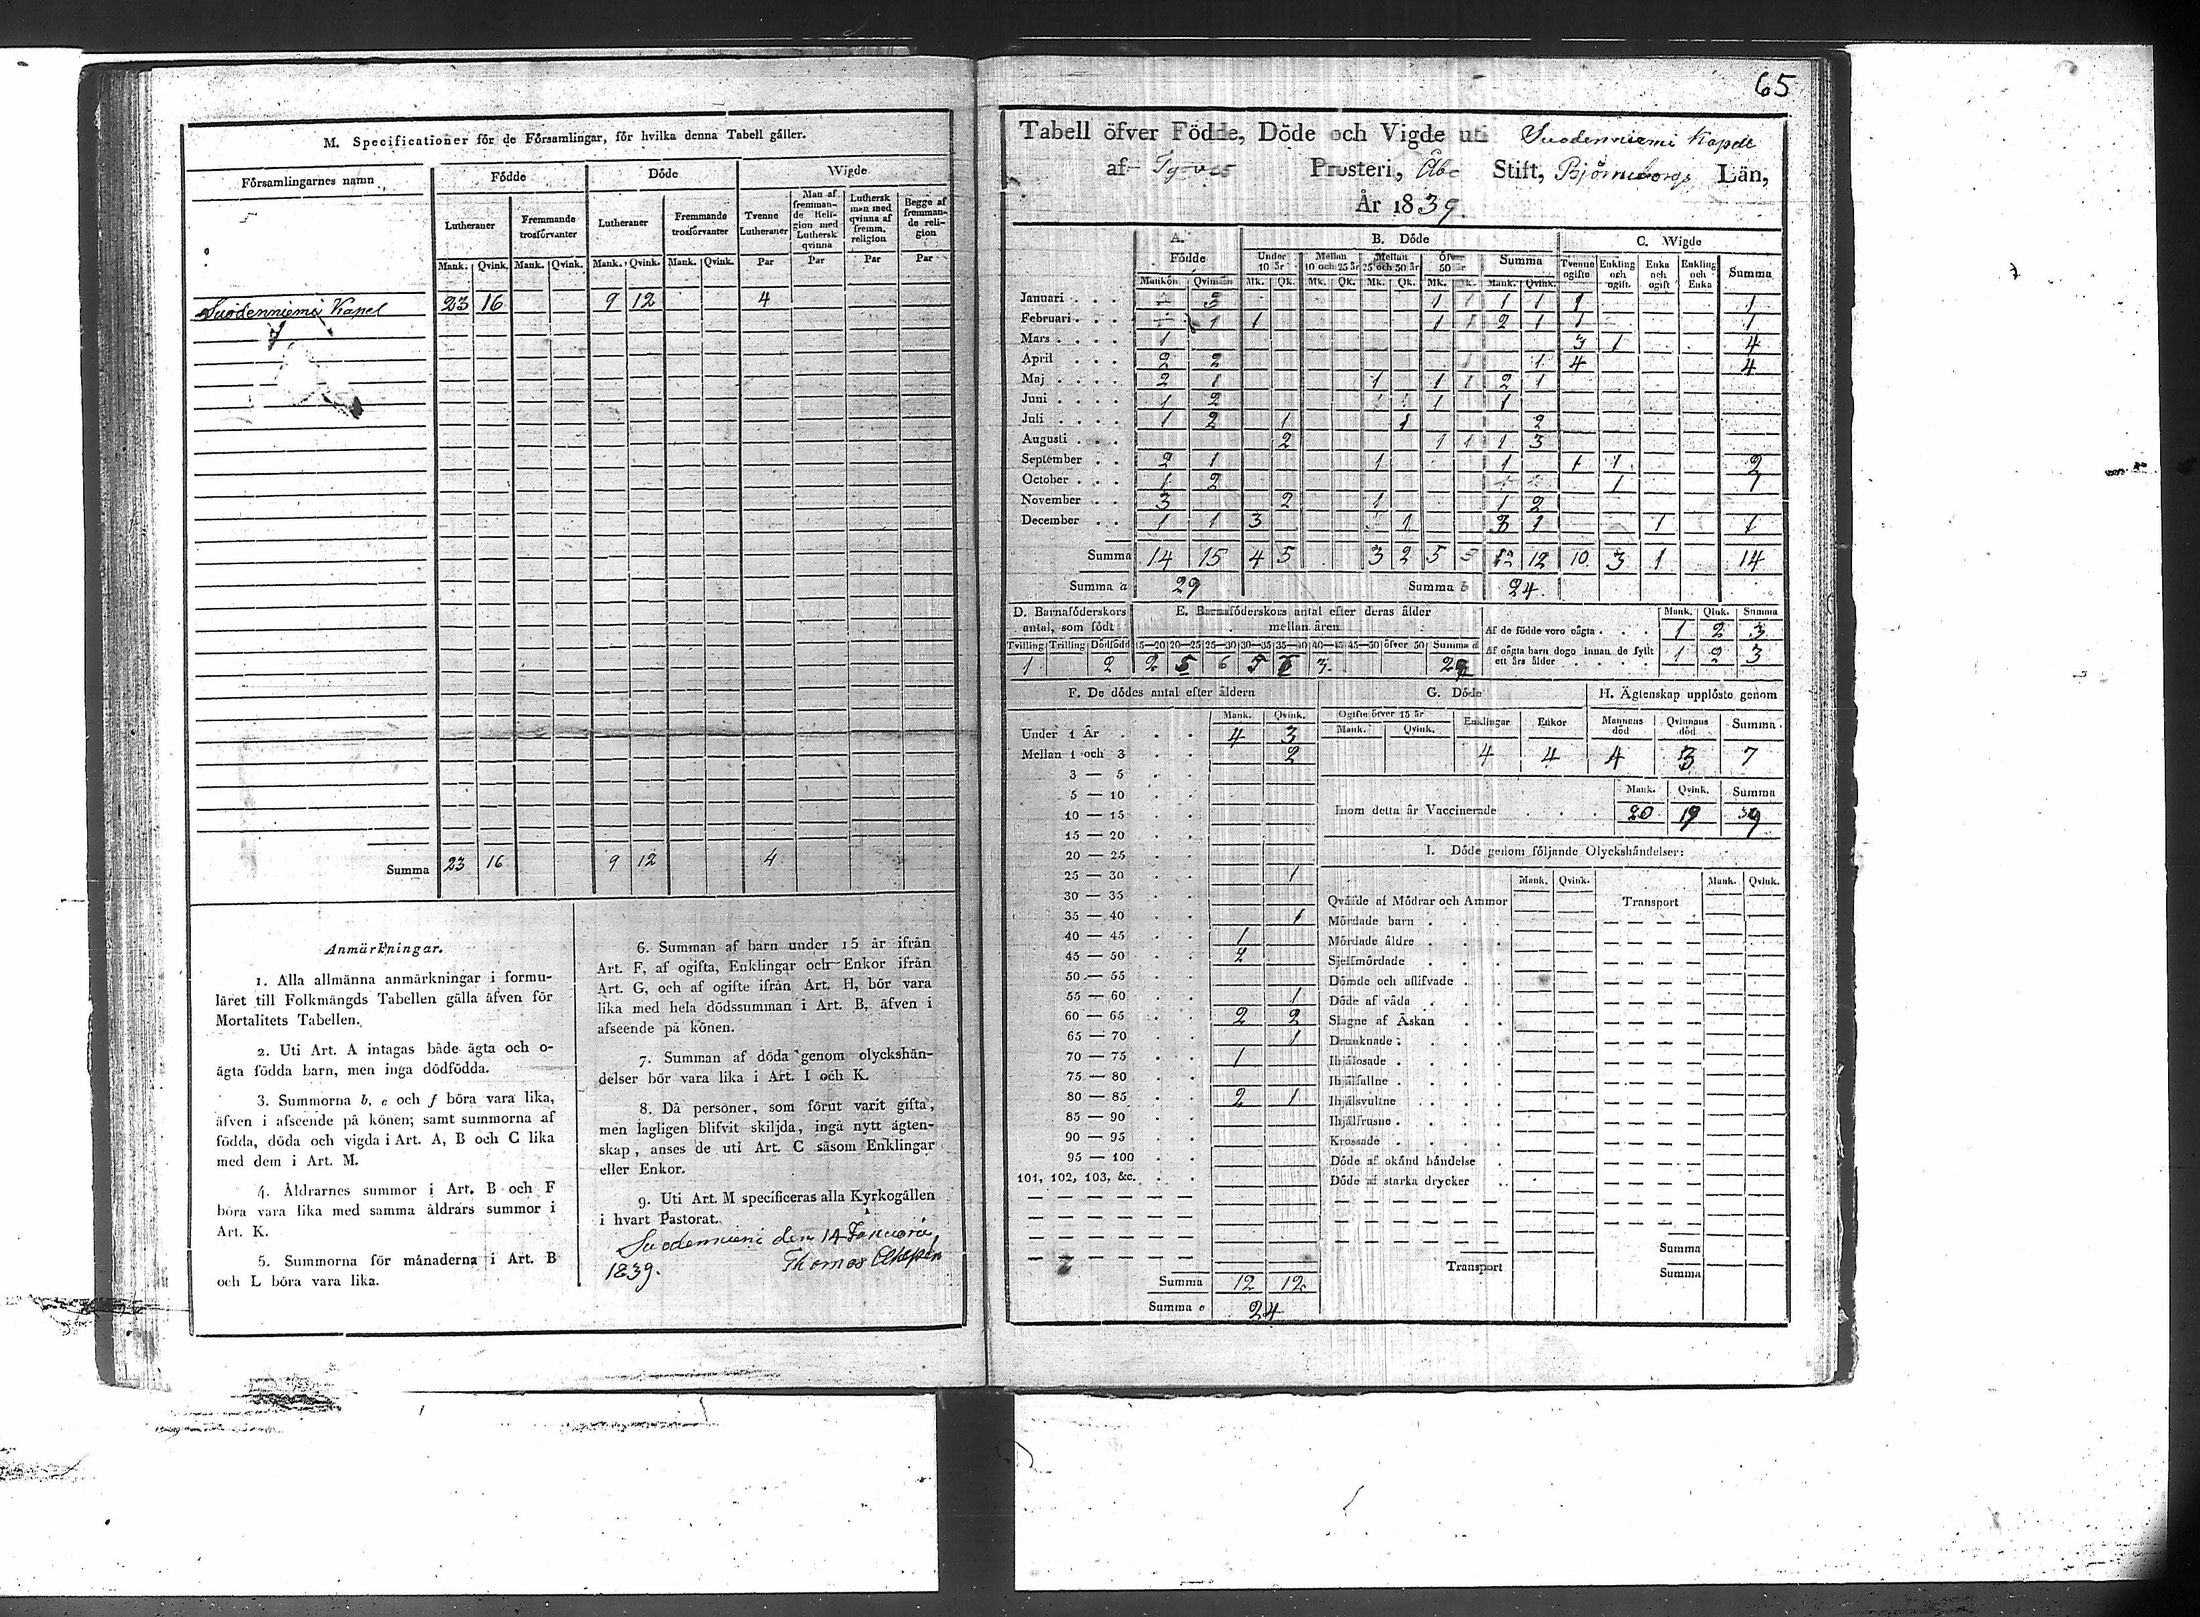 M. Specificationer för de Församlingar, för hvilka denna Tabell gäller.
Församlingarnes namn | Födde | Döde | Wigde
Lutheraner | Fremmande trosförvanter | Lutheraner | Fremmande trosförvanter | Tvenne Lutheraner | Man af fremmande Religion med Luthersk qvinna | Luthersk man med qvinna af fremm. religion | Begge af fremmande religion
Mank. Qvink. Mank. Qvink. Mank. Qvink. Mank. Qvink. Par Par Par Par
Suodenniemi Kapel 23 16 9 12 4
Summa 23 16 9 12 4
Anmärkningar.
1. Alla allmänna anmärkningar i formu-
läret till Folkmängds Tabellen gälla äfven för
Mortalitets Tabellen.
2. Uti Art. A intagas både ägta och o-
ägta födda barn, men inga dödfödda.
3. Summorna b, c och f böra vara lika,
äfven i afseende på könen; samt summorna af
födda, döda och vigda i Art. A, B och C lika
med dem i Art. M.
4. Åldrarnes summor i Art. B och F
böra vara lika med samma åldrars summor i
Art. K.
5. Summorna för månaderna i Art. B
och L böra vara lika.
6. Summan af barn under 15 år ifrån
Art. F, af ogifta, Enklingar och Enkor ifrån
Art. G, och af ogifte ifrån Art. H, bör vara
lika med hela dödssumman i Art. B, äfven i
afseende på könen.
7. Summan af döda genom olyckshän-
delser bör vara lika i Art. I och K.
8. Då personer, som förut varit gifta,
men lagligen blifvit skiljda, ingå nytt ägten-
skap, anses de uti Art. C såsom Enklingar
eller Enkor.
9. Uti Art. M specificeras alla Kyrkogällen
i hvart Pastorat.
Suodenniemi den 14 Januarii
1839. Thomas
65
Tabell öfver Födde, Döde och Vigde uti Suodenniemi Kapell
af Tyrvis Prosteri, Åbo Stift, Björneborgs Län,
År 1839.
A. Födde | B. Döde | C. Wigde
Under 10 år | Mellan 10 och 25 år | Mellan 25 och 50 år | Öfver 50 år | Summa | Tvenne ogifte | Enkling och ogift. | Enka och ogift | Enkling och Enka | Summa
Mankön Qvinnkön Mk. Qk. Mk. Qk. Mk. Qk. Mk. Qk. Mank. Qvink.
Januari 3 1 1 1 1 1 1
Februari 1 1 1 1 2 1 1 1
Mars 1 3 1 4
April 2 2 1 1 4 4
Maj 2 1 1 1 1 2 1
Juni 1 2 1 1
Juli 1 2 1 1 2
Augusti 2 1 1 1 3
September 2 1 1 1 1 1 2
October 1 2 1 1
November 3 2 1 1 2
December 1 1 3 1 3 1 1 1
Summa 14 15 4 5 3 2 5 5 12 12 10 3 1 14
Summa a 29 Summa b 24.
D. Barnaföderskors antal, som födt
Tvilling Trilling Dödfödd
1 2
E. Barnaföderskors antal efter deras ålder mellan åren
15—20 20—25 25—30 30—35 35—40 40—45 45—50 öfver 50 Summa d
2 5 6 5 3
Mank. Qink. Summa
Af de födde voro oägta 1 2 3
Af oägta barn dogo innan de fyllt ett års ålder 1 2 3
F. De dödes antal efter åldern
Mank. Qvink.
Under 1 År 4 3
Mellan 1 och 3 2
3 — 5
5 — 10
10 — 15
15 — 20
20 — 25
25 — 30 1
30 — 35
35 — 40 1
40 — 45 1
45 — 50 2
50 — 55
55 — 60 1
60 — 65 2 2
65 — 70 1
70 — 75 1
75 — 80
80 — 85 2 1
85 — 90
90 — 95
95 — 100
101, 102, 103, &c.
Summa 12 12
Summa e 24
G. Döde
Ogifte öfver 15 år | Enklingar | Enkor
Mank. Qvink.
4 4
H. Ägtenskap upplöste genom
Mannens död | Qvinnans död | Summa
4 3 7
Mank. Qvink. Summa
Inom detta år Vaccinerade 20 19 39
I. Döde genom följande Olyckshändelser:
Mank. Qvink. Mank. Qvink.
Qväfde af Mödrar och Ammor Transport
Mördade barn
Mördade äldre
Sjelfmördade
Dömde och aflifvade
Döde af våda
Slagne af Åskan
Drunknade
Ihjälosade
Ihjälfallne
Ihjälsvultne
Ihjälfrusne
Krossade
Döde af okänd händelse
Döde af starka drycker
Summa
Transport Summa